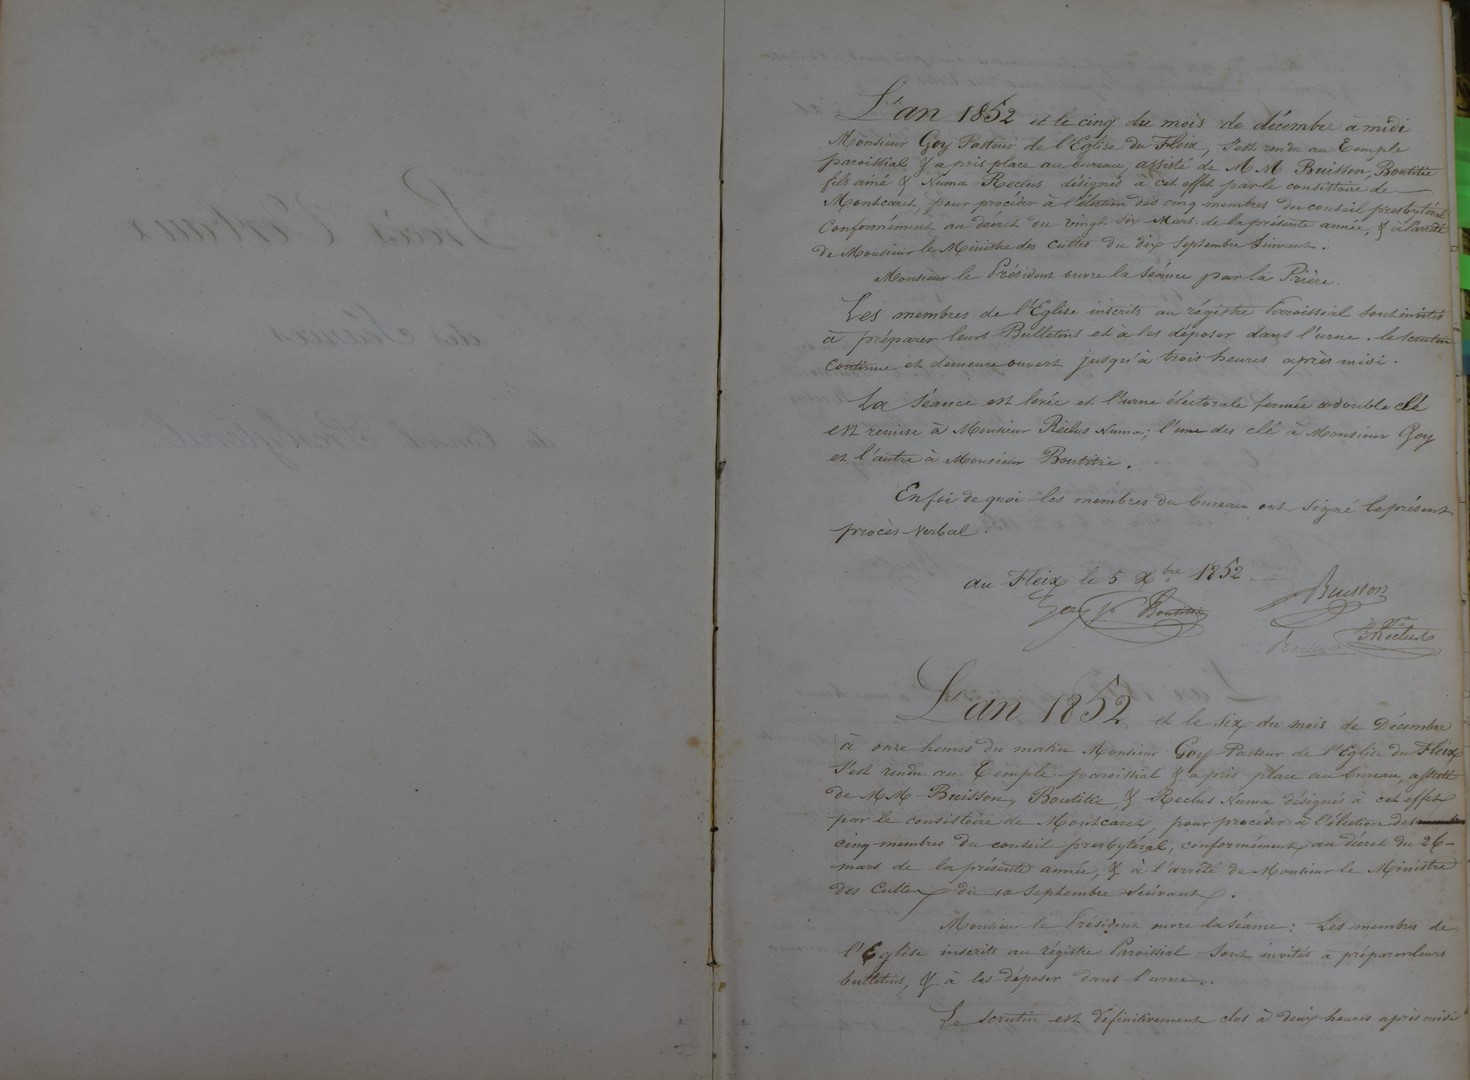 L'an 1852 et le cinq du mois de décembre à midi
Monsieur Goy Pasteur de l'Eglise du Fleix, s'est rendu au Temple
paroissial & a pris place au bureau, assisté de M M Buisson, Boutitie
fils ainé & Numa Reclus désignés à cet effet par le consistoire de
Montcaret, pour procéder à l'élection des cinq membres du conseil presbytéral
Conformément au décret du vingt six Mars de la présente année, & à l'arrêté
de Monsieur le Ministre des cultes du dix Septembre Suivant.
Monsieur le Président ouvre la séance par la Prière.
Les membres de l'Eglise inscrits au régistre Paroissial sont invités
à préparer leurs Bulletins et à les déposer dans l'urne. le scrutin
continue et demeure ouvert jusqu'à trois heures après midi.
La Séance est levée et l'urne électorale fermée à double clé
est remise à Monsieur Réclus Numa; l'une des clé à Monsieur Goy
et l'autre à Monsieur Boutitie.
En foi de quoi les membres du bureau ont signé le présent
procès verbal.
au Fleix le 5 Xbre 1852
Buisson
Goy Boutitie
Reclus
L'an 1852 et le six du mois de Décembre
à onze heures du matin Monsieur Goy Pasteur de l'Eglise du Fleix
s'est rendu au Temple paroissial & a pris place au bureau, assisté
de M M Buisson, Boutitie, & Reclus Numa désignés à cet effet
par le consistoire de Montcaret, pour procéder à l'élection des
cinq membres du conseil presbytéral, conformément au décret du 26
mars de la présente année, & à l'arrêté de Monsieur le Ministre
des Cultes du 10 Septembre Suivant.
Monsieur le Président ouvre la séance: Les membres de
l'Eglise inscrits au régistre Paroissial sont invités à préparer leurs
bulletins, & à les déposer dans l'urne.
Le scrutin est définitivement clos à deux heures après midi